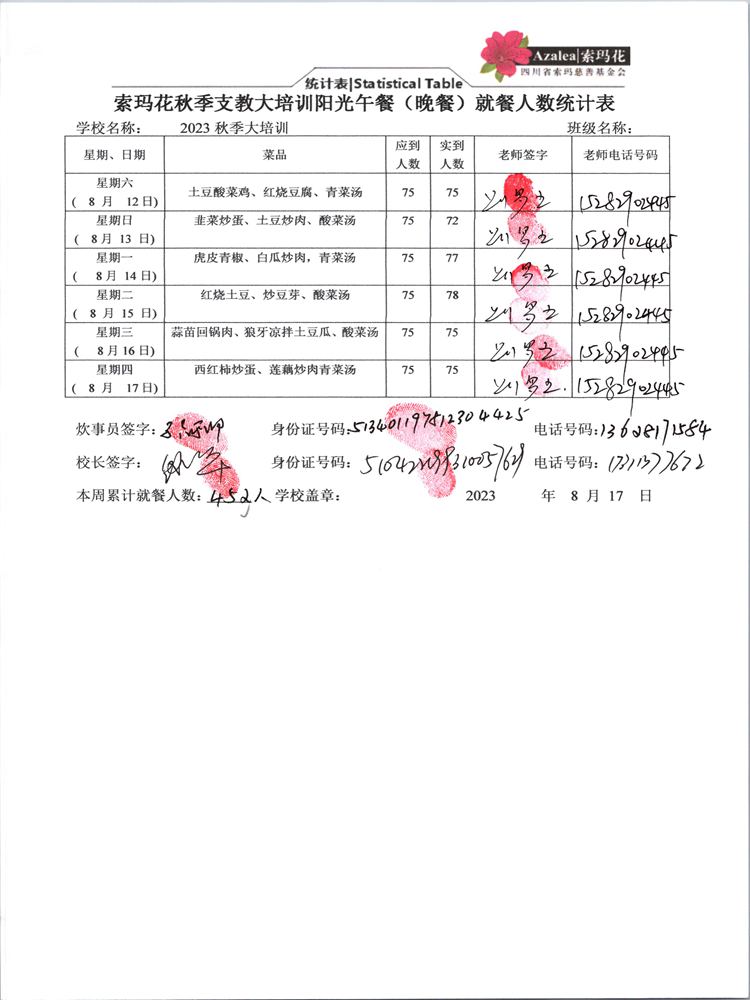 Azalea|索玛花
四川省索玛慈善基金会
统计表|Statistical Table
索玛花秋季支教大培训阳光午餐（晚餐）就餐人数统计表
学校名称： 2023 秋季大培训 班级名称：
星期、日期 菜品 应到人数 实到人数 老师签字 老师电话号码
星期六 ( 8 月 12 日) 土豆酸菜鸡、红烧豆腐、青菜汤 75 75 15282902445
星期日 ( 8 月 13 日) 韭菜炒蛋、土豆炒肉、酸菜汤 75 72 15282902445
星期一 ( 8 月 14 日) 虎皮青椒、白瓜炒肉，青菜汤 75 77 15282902445
星期二 ( 8 月 15 日) 红烧土豆、炒豆芽、酸菜汤 75 78 15282902445
星期三 ( 8 月 16 日) 蒜苗回锅肉、狼牙凉拌土豆瓜、酸菜汤 75 75 15282902445
星期四 ( 8 月 17 日) 西红柿炒蛋、莲藕炒肉青菜汤 75 75 15282902445
炊事员签字： 身份证号码：513401197512304425 电话号码：13628171584
校长签字： 身份证号码： 电话号码：
本周累计就餐人数：452人 学校盖章： 2023 年 8 月 17 日